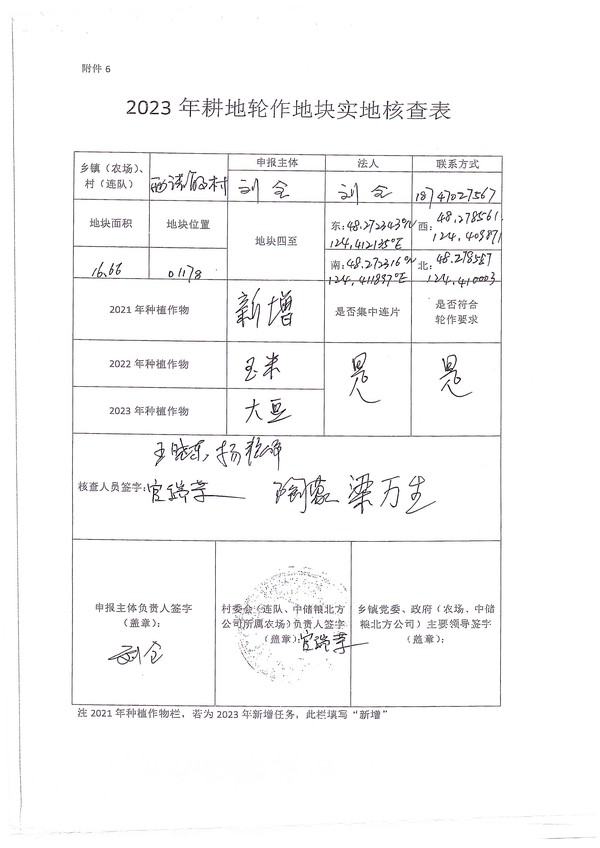 附件 6
2023 年耕地轮作地块实地核查表
乡镇（农场）、村（连队）
申报主体
法人
联系方式
刘全
刘全
18747027567
地块面积
地块位置
地块四至
东：48.272343°N
124.412135°E
西：48.278561
124.409871
16.66
01178
南：48.272316°N
124.411897°E
北：48.278557
124.410003
2021 年种植作物
新增
是否集中连片
是否符合轮作要求
2022 年种植作物
玉米
是
是
2023 年种植作物
大豆
王晓东
核查人员签字：宫瑞革
陶蕊
梁万生
申报主体负责人签字
（盖章）：
刘全
村委会（连队、中储粮北方
公司所属农场）负责人签字
（盖章）：宫瑞革
乡镇党委、政府（农场、中储
粮北方公司）主要领导签字
（盖章）：
注 2021 年种植作物栏，若为 2023 年新增任务，此栏填写“新增”